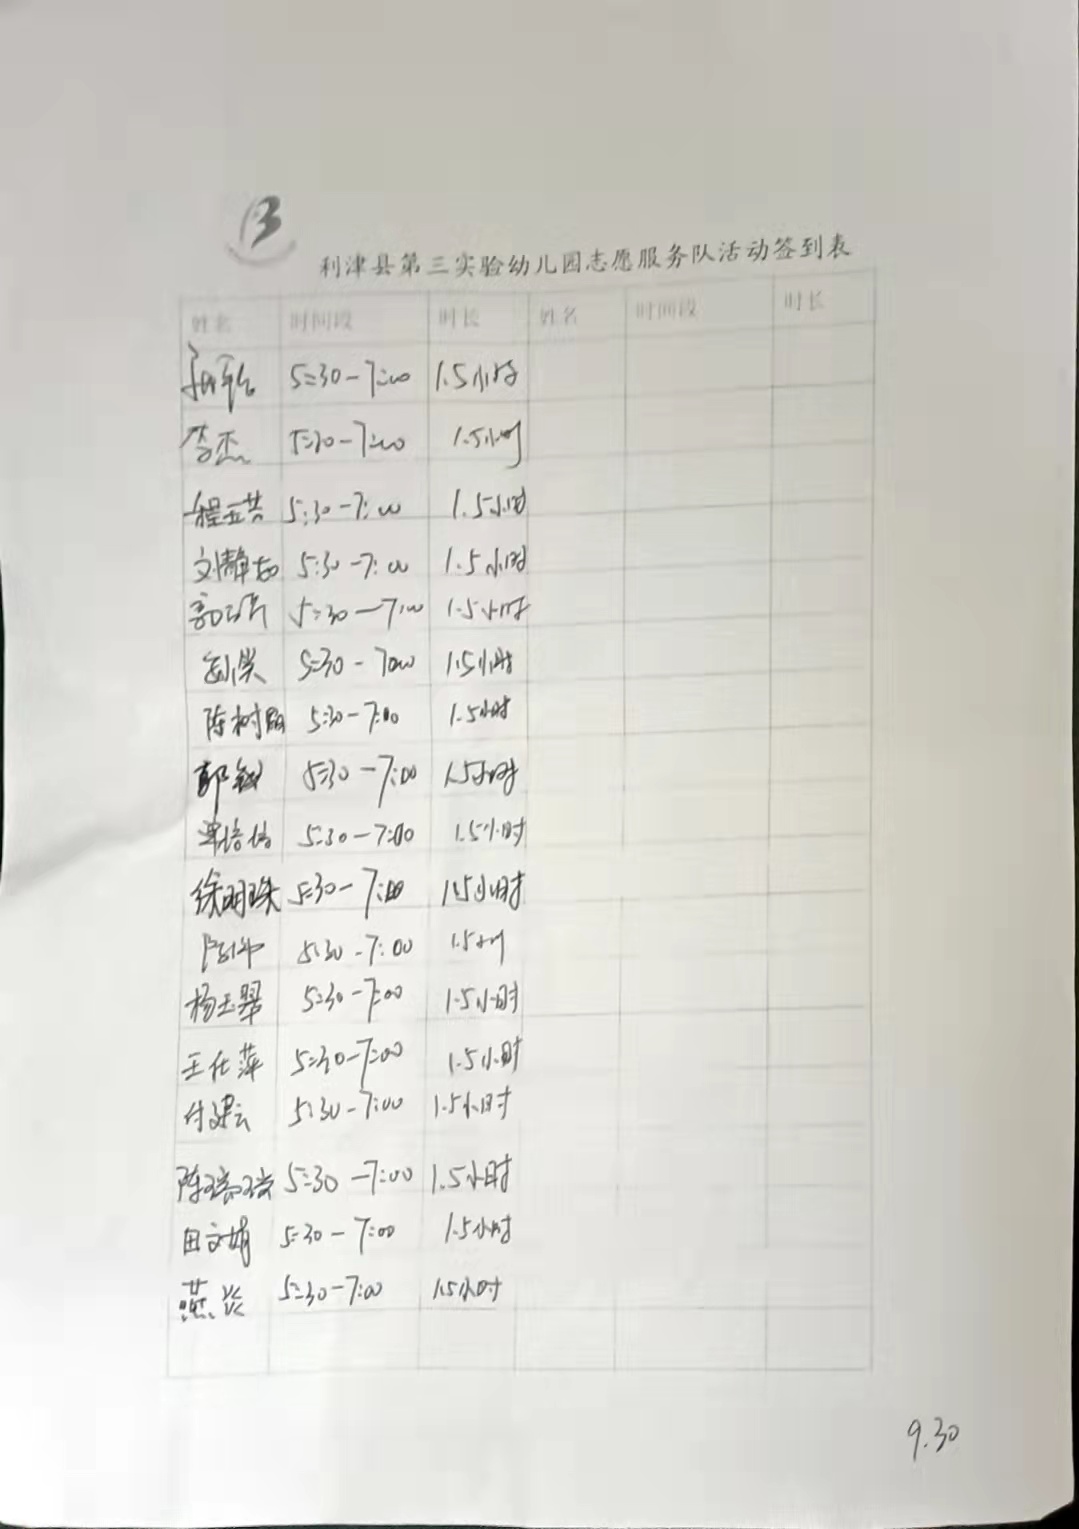 13
利津县第三实验幼儿园志愿服务队活动签到表
姓名 时间段 时长 姓名 时间段 时长
5:30-7:00 1.5小时
李杰 5:30-7:00 1.5小时
程玉芸 5:30-7:00 1.5小时
刘静 5:30-7:00 1.5小时
5:30-7:00 1.5小时
5:30-7:00 1.5小时
陈树 5:30-7:00 1.5小时
郭 5:30-7:00 1.5小时
5:30-7:00 1.5小时
徐明珠 5:30-7:00 1.5小时
5:30-7:00 1.5小时
杨玉翠 5:30-7:00 1.5小时
王仕萍 5:30-7:00 1.5小时
付建云 5:30-7:00 1.5小时
陈瑞瑞 5:30-7:00 1.5小时
田文娟 5:30-7:00 1.5小时
燕 5:30-7:00 1.5小时
9.30